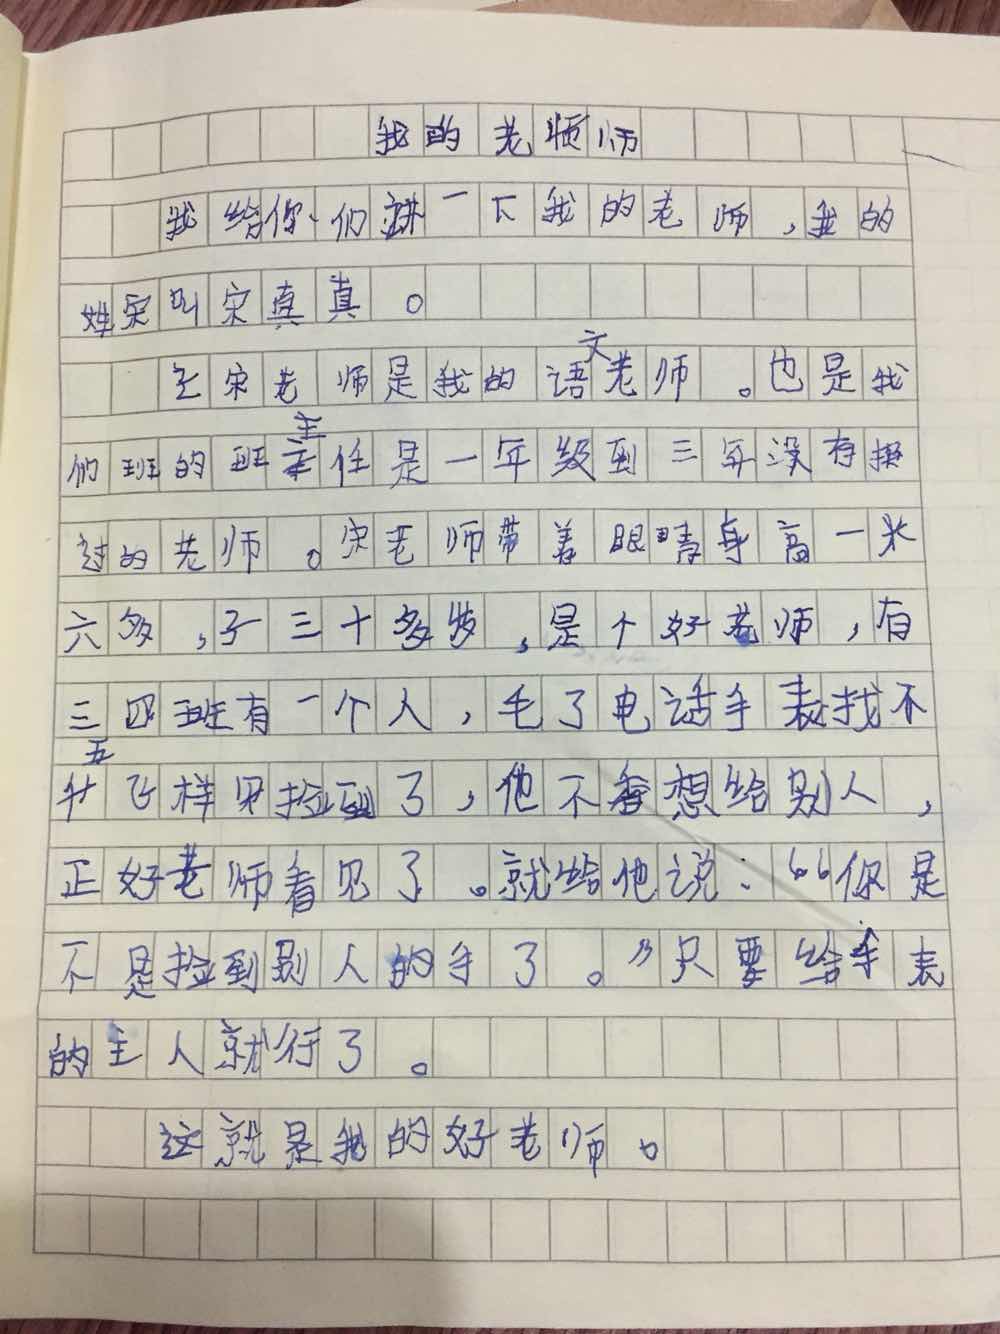 我的老师师
我给你、们讲一下我的老师,我的
姓宋叫宋真真。
宋老师是我的语文老师。也是我
们班的班主任是一年级到三年没有换
过的老师。宋老师带着眼睛身高一米
六多,子三十多岁,是个好老师,有
三四班有一个人,毛了电话手表找不
五飞样见捡到了,他不想给别人,
正好老师看见了。就给他说:“你是
不是捡到别人的手了。”只要给手表
的主人就行了。
这就是我的好老师。